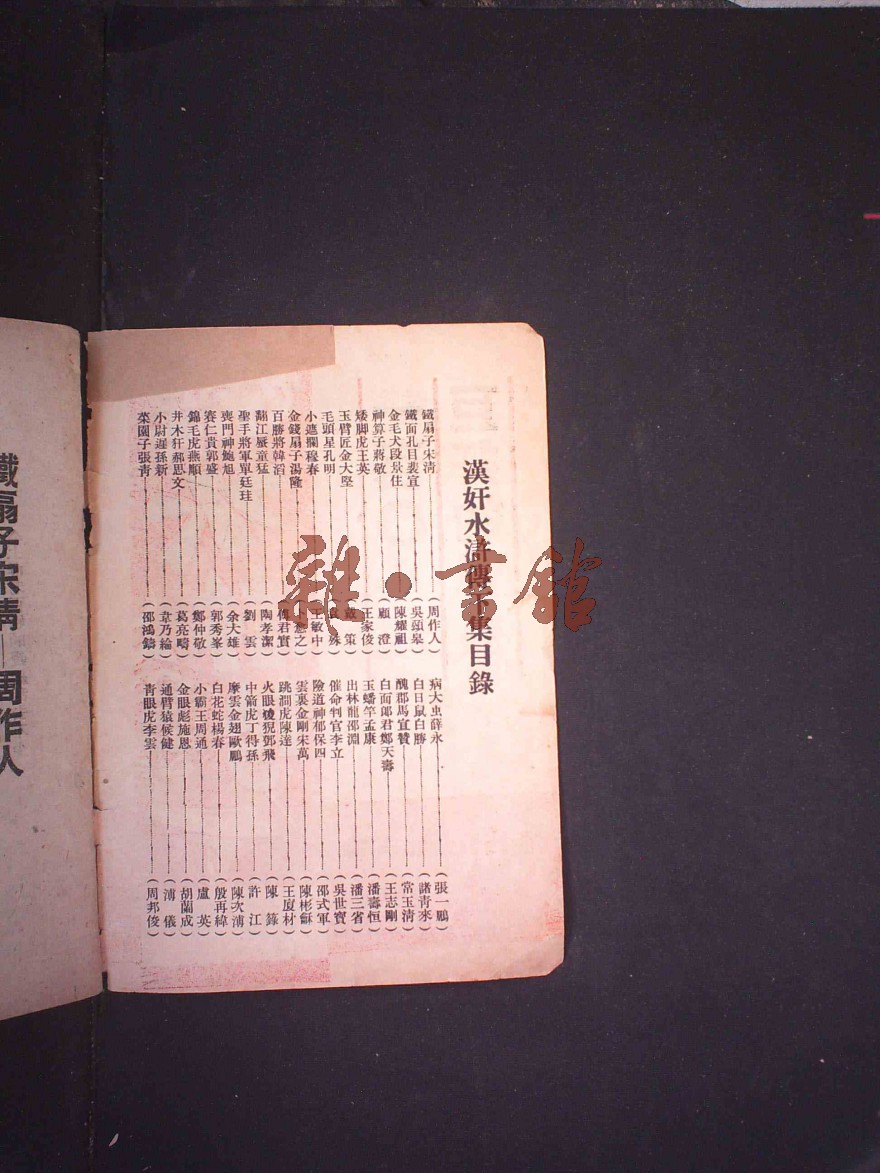 漢奸水滸傳集目錄
鐵扇子宋清………(周作人)
鐵面孔目裴宣………(吳頌皋)
金毛犬段景住………(陳耀祖)
神算子蔣敬………(顧澄)
矮脚虎王英………(王家俊)
玉臂匠金大堅………(策)
毛頭星孔明………(殊)
小遮攔穆春………(王敏中)
金錢扇子湯隆………(愈之)
百勝將韓滔………(君實)
翻江蜃童猛………(陶孝潔)
聖手將軍單廷珪………(劉雲)
喪門神鮑旭………(余大雄)
賽仁貴郭盛………(郭秀峯)
錦毛虎燕順………(鄭仲敬)
井木犴郝思文………(葛亮疇)
小尉遲孫新………(韋乃綸)
菜園子張青………(邵鴻鑄)
病大虫薛永………(張一鵬)
白日鼠白勝………(諸青來)
醜郡馬宣贊………(常玉清)
白面郎君鄭天壽………(王志剛)
玉蟠竿孟康………(潘壽恒)
出林龍鄒淵………(潘三省)
催命判官李立………(吳世寶)
險道神郁保四………(邵式軍)
雲裏金剛宋萬………(陳彬龢)
跳澗虎陳達………(王廈材)
火眼狻猊鄧飛………(陳籙)
中箭虎丁得孫………(許江)
摩雲金翅歐鵬………(陳次溥)
白花蛇楊春………(殷再緯)
小霸王周通………(盧英)
金眼彪施恩………(胡蘭成)
通臂猿候健………(溥儀)
青眼虎李雲………(周邦俊)
鐵扇子宋清—周作人
雜·書館